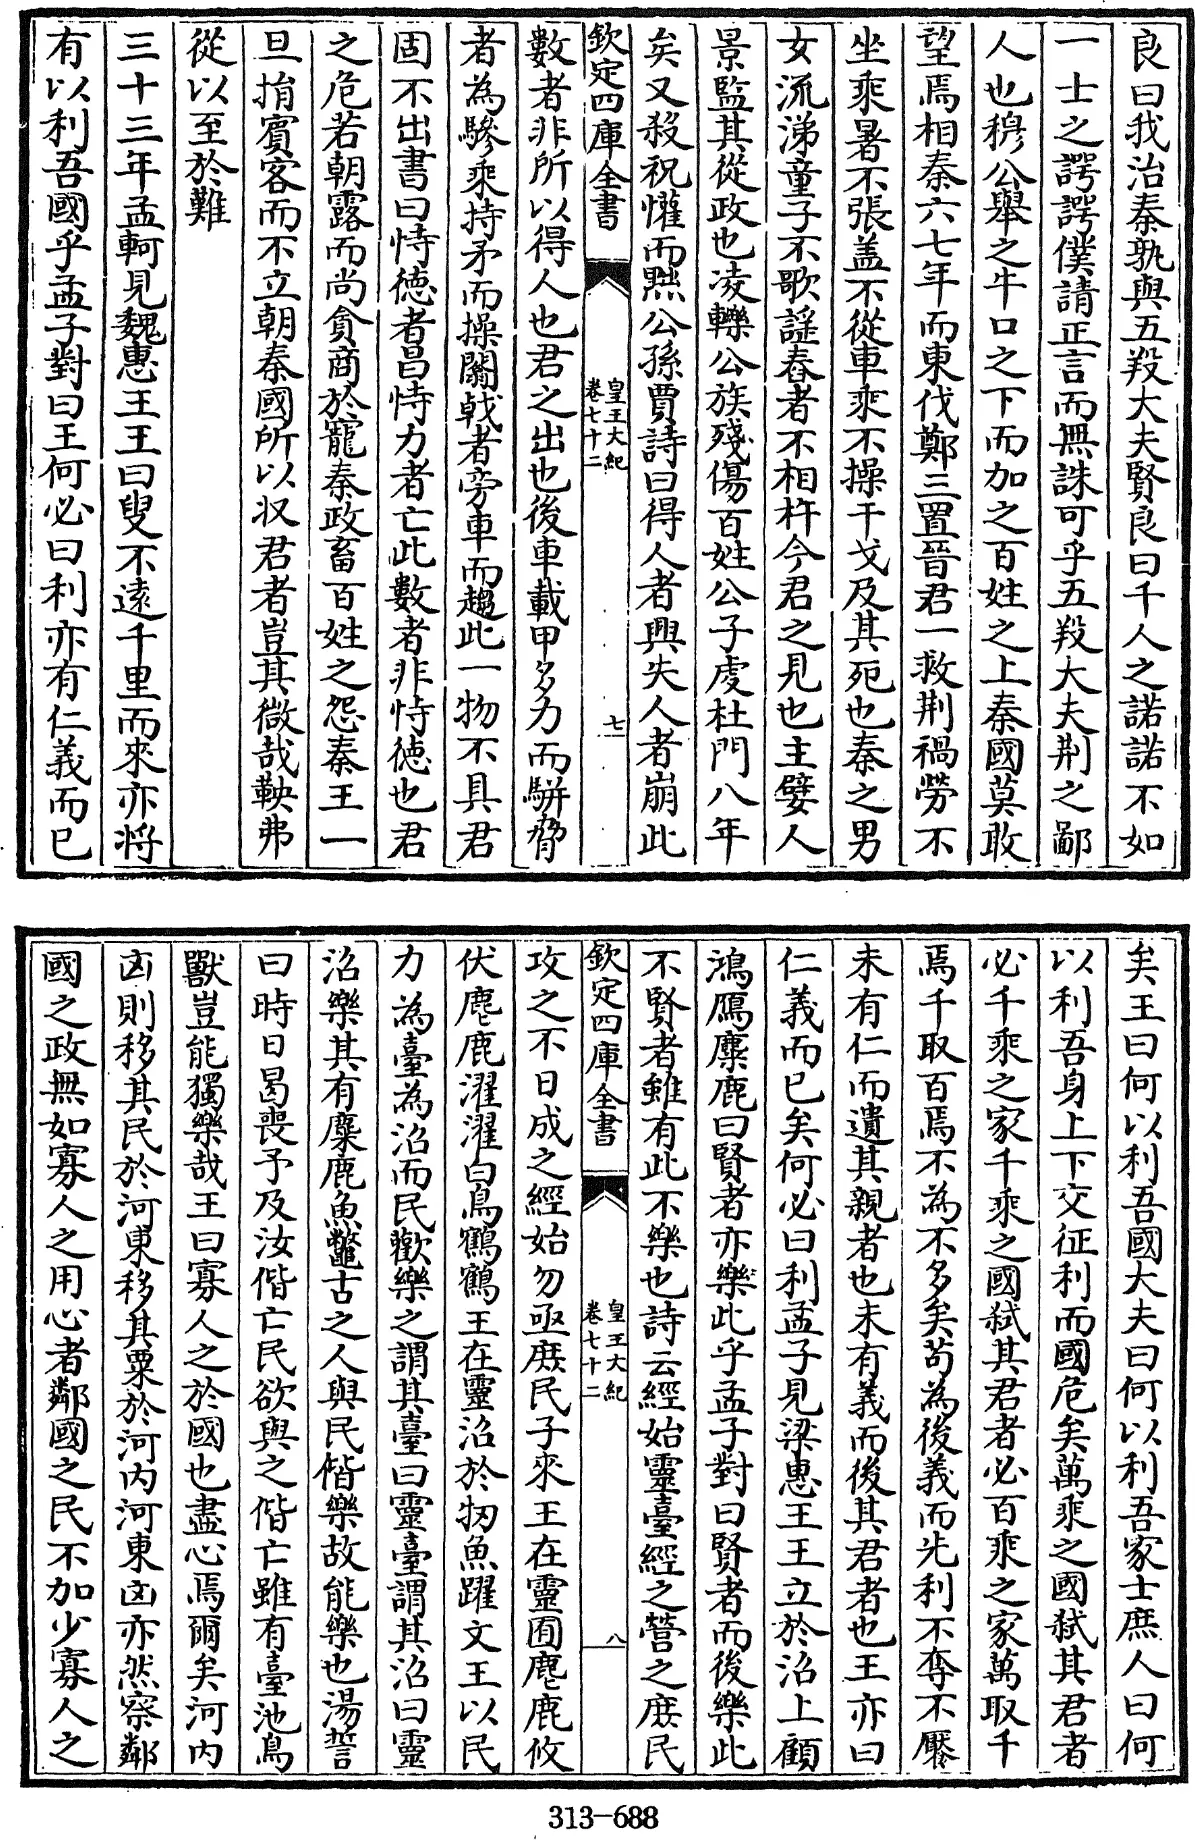 良曰我治秦孰與五羖大夫賢良曰千人之諾諾不如
一士之諤諤僕請正言而無誅可乎五羖大夫荆之鄙
人也穆公舉之牛口之下而加之百姓之上秦國莫敢
望焉相秦六七年而東伐鄭三置晉君一救荆禍勞不
坐乘暑不張盖不從車乘不操干戈及其死也秦之男
女流涕童子不歌謡舂者不相杵今君之見也主嬖人
景監其從政也凌轢公族殘傷百姓公子虔杜門八年
矣又殺祝懽而黥公孫賈詩曰得人者興失人者崩此
欽定四庫全書
皇王大紀
卷七十二
七
數者非所以得人也君之出也後車載甲多力而駢脅
者為驂乘持矛而操闟戟者旁車而趨此一物不具君
固不出書曰恃徳者昌恃力者亡此數者非恃徳也君
之危若朝露而尚貪商於寵秦政畜百姓之怨秦王一
旦捐賓客而不立朝秦國所以収君者豈其微哉鞅弗
從以至於難
三十三年孟軻見魏惠王王曰叟不逺千里而來亦將
有以利吾國乎孟子對曰王何必曰利亦有仁義而已
矣王曰何以利吾國大夫曰何以利吾家士庶人曰何
以利吾身上下交征利而國危矣萬乘之國弑其君者
必千乘之家千乘之國弑其君者必百乘之家萬取千
焉千取百焉不為不多矣茍為後義而先利不奪不饜
未有仁而遺其親者也未有義而後其君者也王亦曰
仁義而已矣何必曰利孟子見梁惠王王立於沼上顧
鴻鴈麋鹿曰賢者亦樂此乎孟子對曰賢者而後樂此
不賢者雖有此不樂也詩云經始靈臺經之營之庻民
欽定四庫全書
皇王大紀
卷七十二
八
攻之不日成之經始勿亟庻民子來王在靈囿麀鹿攸
伏麀鹿濯濯白鳥鶴鶴王在靈沼於牣魚躍文王以民
力為臺為沼而民歡樂之謂其臺曰靈臺謂其沼曰靈
沼樂其有麋鹿魚鼈古之人與民偕樂故能樂也湯誓
曰時日曷喪予及汝偕亡民欲與之偕亡雖有臺池鳥
獸豈能獨樂哉王曰寡人之於國也盡心焉爾矣河内
凶則移其民於河東移其粟於河内河東凶亦然察鄰
國之政無如寡人之用心者鄰國之民不加少寡人之
313-688